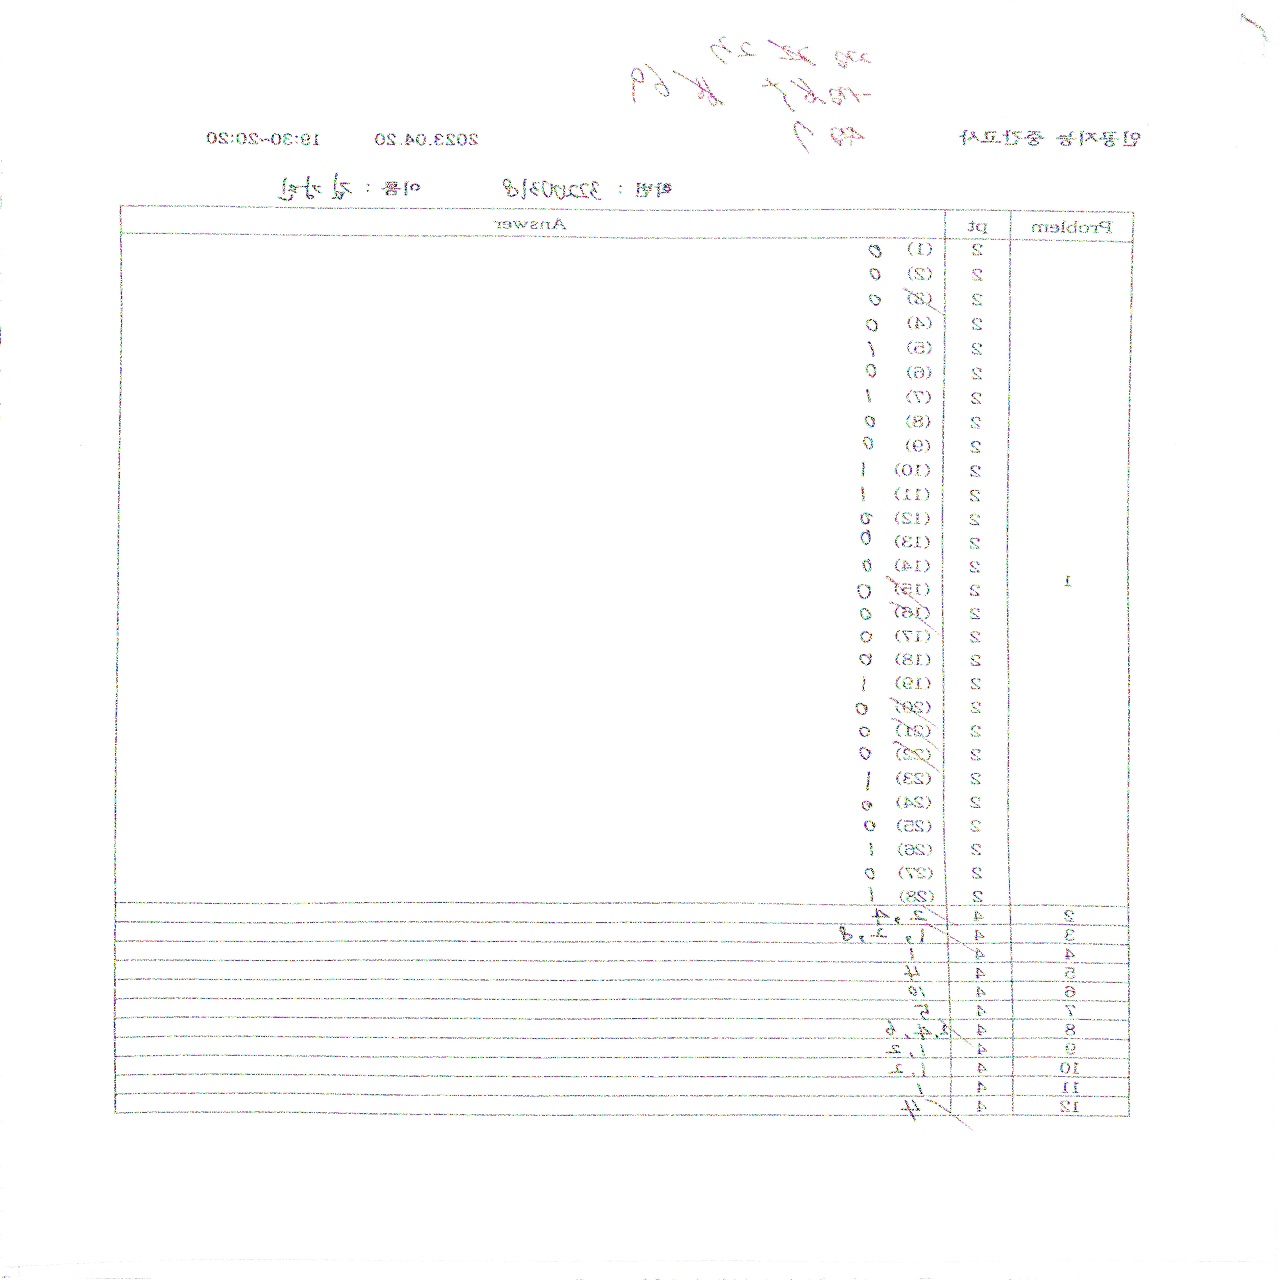 인공지능 중간고사 2023.04.20 19:30-20:20
학번 : 32200318 이름 :
Problem pt Answer
1
2 (1) 0
2 (2) 0
2 (3) 0
2 (4) 0
2 (5) 1
2 (6) 0
2 (7) 1
2 (8) 0
2 (9) 0
2 (10) 1
2 (11) 1
2 (12) 0
2 (13) 0
2 (14) 0
2 (15) 0
2 (16) 0
2 (17) 0
2 (18) 0
2 (19) 1
2 (20) 0
2 (21) 0
2 (22) 0
2 (23) 1
2 (24) 0
2 (25) 0
2 (26) 1
2 (27) 0
2 (28) 1
2 4 2, 4
3 4 1, 8
4 4 1
5 4 4
6 4 10
7 4 5
8 4 2, 4, 6
9 4 1, 2
10 4 1, 2
11 4 1
12 4 4